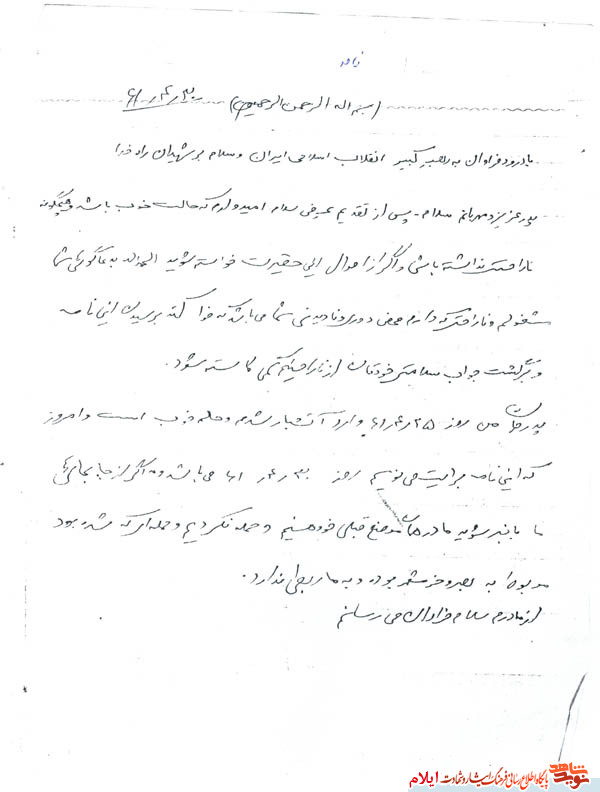 نامه
(بسم اله الرحمن الرحیم) ۶۱/۴/۳۰
با درود فراوان به رهبر کبیر انقلاب اسلامی ایران و سلام بر شهیدان راه خدا
پدر عزیز و مهربانم سلام - پس از تقدیم عرض سلام امیدوارم که حالت خوب باشد و هیچگونه
ناراحتی نداشته باشی و اگر از احوال این حقیرت خواسته شوید الحمداله به دعاگوئی شما
مشغولم و ناراحتی که دارم محض دوری و نادیدنی شما می باشد که خدا کند برسیدن این نامه
و برگشت جواب سلامتی خودتان از ناراحتیم کمی کاسته شود.
پدر جان من روز ۲۵/۴/۶۱ وارد آتشبار شدم و حالم خوب است و امروز
که این نامه برایت می نویسم روز ۳۰/۴/۶۱ می باشد و اگر از جابجائی
ما باخبر شوید ما در همان موضع قبلی خود هستیم و حمله نکردیم و حمله ای که شده بود
مربوط به بصره و خرمشهر بوده و به ما ربطی ندارد.
از مادرم سلام فراوان می رسانم
نوید شاهد
پایگاه اطلاع رسانی فرهنگ ایثار و شهادت ایلام